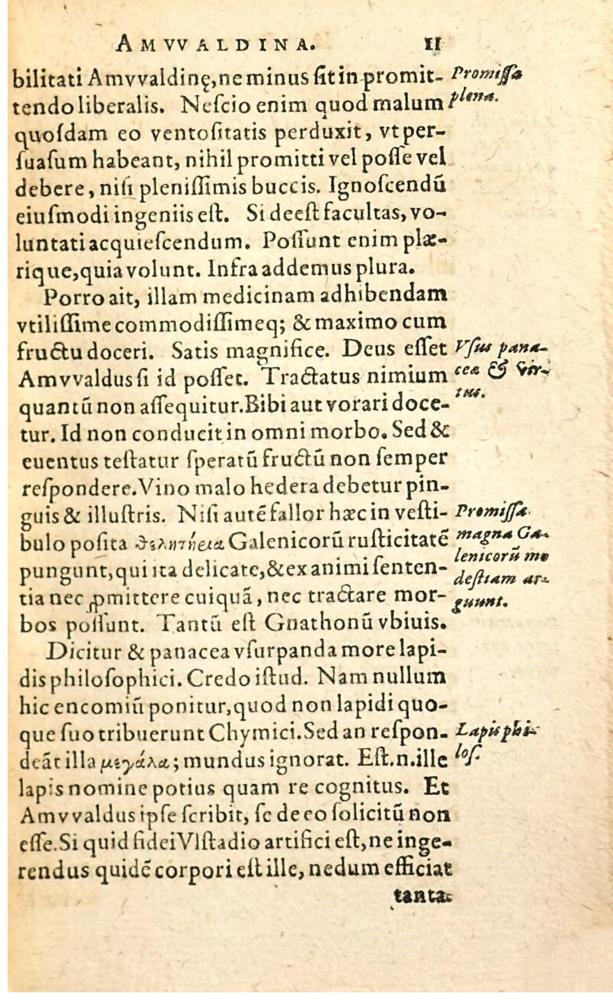 AMVVALDINA. 11
bilitati Amvvaldinę, ne minus sit in promit- Promissa
tendo liberalis. Nescio enim quod malum plena.
quosdam eo ventositatis perduxit, vt per-
suasum habeant, nihil promitti vel posse vel
debere, nisi plenissimis buccis. Ignoscendũ
eiusmodi ingeniis est. Si deest facultas, vo-
luntati acquiescendum. Possunt enim plæ-
rique, quia volunt. Infra addemus plura.
Porro ait, illam medicinam adhibendam
vtilissime commodissimeq; & maximo cum
fructu doceri. Satis magnifice. Deus esset Vsus pana-
Amvvaldus si id posset. Tractatus nimium cea & vir-
quantũ non assequitur. Bibi aut vorari doce- tus.
tur. Id non conducit in omni morbo. Sed &
euentus testatur speratũ fructũ non semper
respondere. Vino malo hedera debetur pin-
guis & illustris. Nisi autẽ fallor hæc in vesti- Promissa
bulo posita θελητήεια Galenicorũ rusticitatẽ magna Ga-
pungunt, qui ita delicate, & ex animi senten- lenicorũ mo
tia nec ꝓmittere cuiquã, nec tractare mor- destiam ar-
bos possunt. Tantũ est Gnathonũ vbiuis. guunt.
Dicitur & panacea vsurpanda more lapi-
dis philosophici. Credo istud. Nam nullum
hic encomiũ ponitur, quod non lapidi quo-
que suo tribuerunt Chymici. Sed an respon- Lapis phi-
deãt illa μεγάλα; mundus ignorat. Est.n.ille los.
lapis nomine potius quam re cognitus. Et
Amvvaldus ipse scribit, se de eo solicitũ non
esse. Si quid fidei Vlstadio artifici est, ne inge-
rendus quidẽ corpori est ille, nedum efficiat
tanta